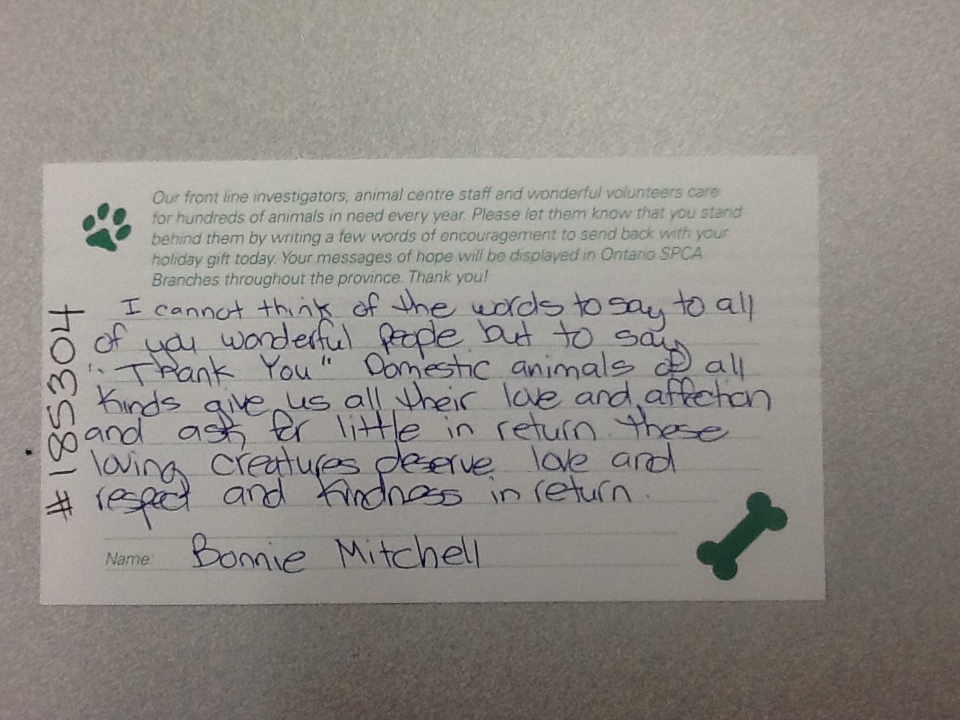 Our front line investigators, animal centre staff and wonderful volunteers care
for hundreds of animals in need every year. Please let them know that you stand
behind them by writing a few words of encouragement to send back with your
holiday gift today. Your messages of hope will be displayed in Ontario SPCA
Branches throughout the province. Thank you!
I cannot think of the words to say to all
of you wonderful people but to say
"Thank You" Domestic animals of all
kinds give us all their love and affection
and ask for little in return. These
loving creatures deserve love and
respect and kindness in return.
Name: Bonnie Mitchell
# 185304